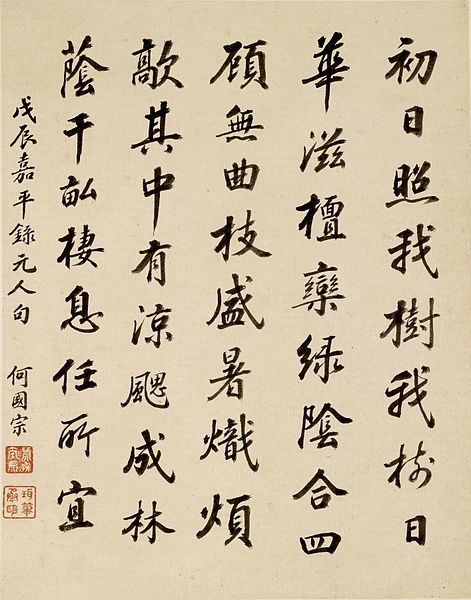 初日照我樹我树日
華滋檀欒綠陰合四
顧無曲枝盛暑熾煩
歊其中有涼颸成林
蔭千畝棲息任所宜
戊辰嘉平錄元人句
何國宗